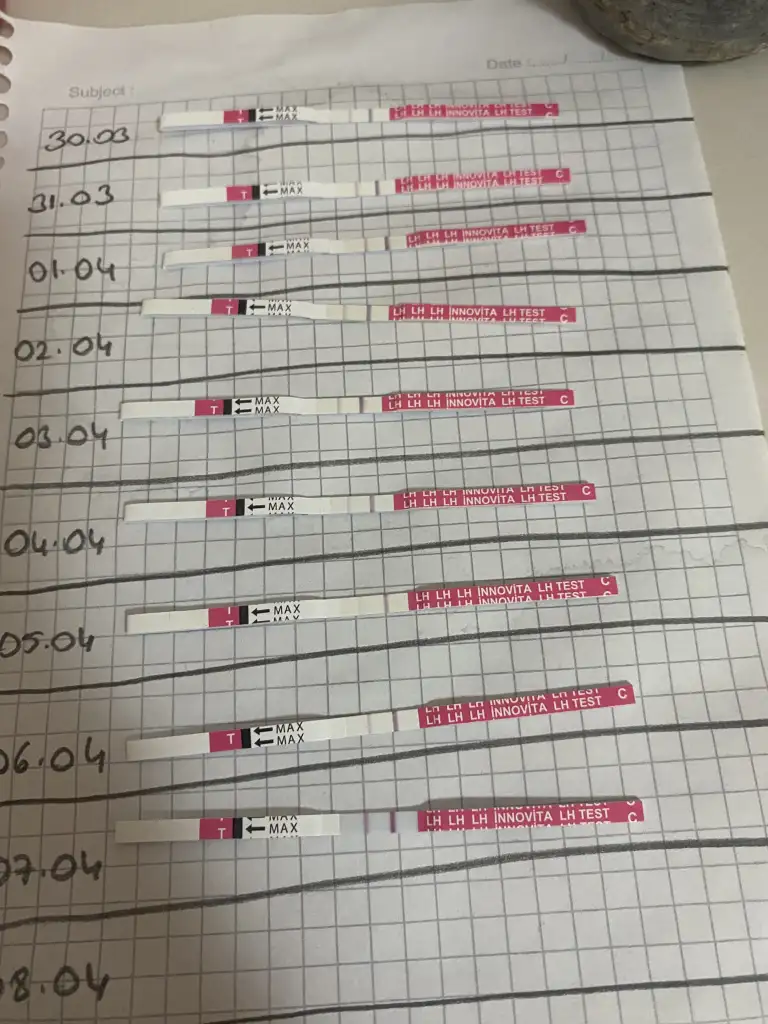 Date :
Subject :
30.03
T MAX MAX LH LH LH INNOVİTA LH TEST C
31.03
T MAX LH LH LH INNOVİTA LH TEST C
01.04
T MAX LH LH LH INNOVİTA LH TEST C
02.04
T MAX LH LH LH INNOVİTA LH TEST C
03.04
T MAX MAX LH LH LH INNOVİTA LH TEST C
04.04
T MAX LH LH LH INNOVİTA LH TEST C
05.04
T MAX LH LH LH INNOVİTA LH TEST C
06.04
T MAX MAX LH LH LH INNOVİTA LH TEST C
07.04
T MAX LH LH LH INNOVİTA LH TEST C
08.04